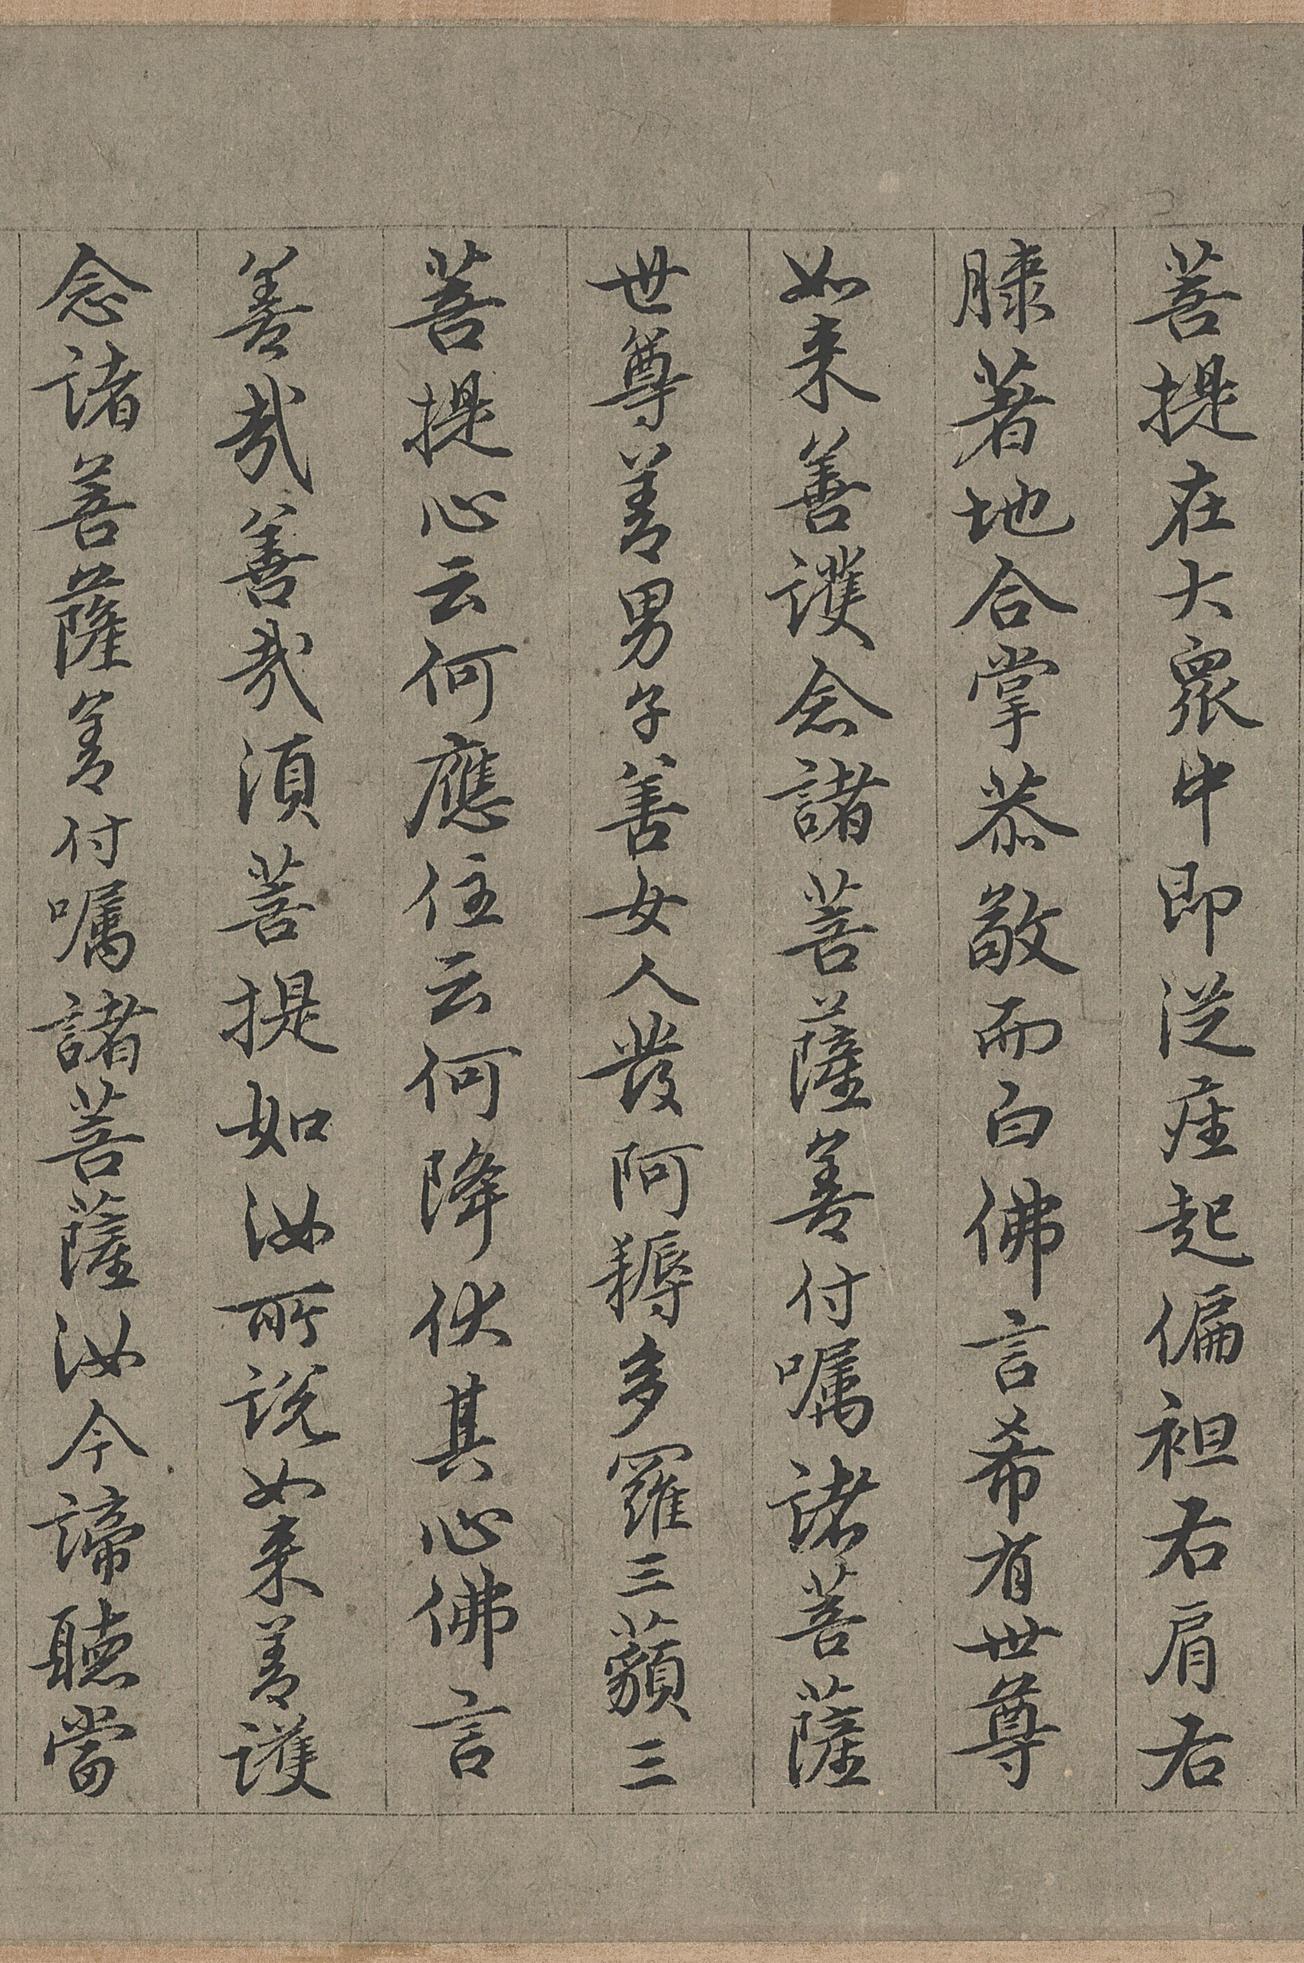 菩提在大衆中即從座起偏袒右肩右
膝著地合掌恭敬而白佛言希有世尊
如来善護念諸菩薩善付囑諸菩薩
世尊善男子善女人發阿耨多羅三藐三
菩提心云何應住云何降伏其心佛言
善哉善哉須菩提如汝所説如来善護
念諸菩薩善付囑諸菩薩汝今諦聽當